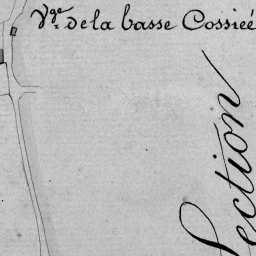 Vge. de la basse Cossieé
Section